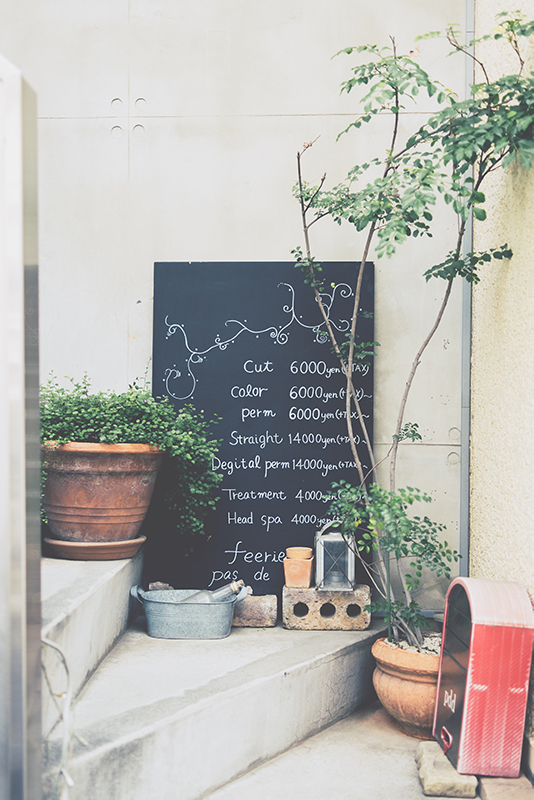 Cut 6000yen(+TAX)
Color 6000yen(+TAX)~
perm 6000yen(+TAX)~
Straight 14000yen(+TAX)~
Degital perm 14000yen(+TAX)~
Treatment 4000yen(+TAX)~
Head spa 4000yen(+TAX)~
feerie
pas de